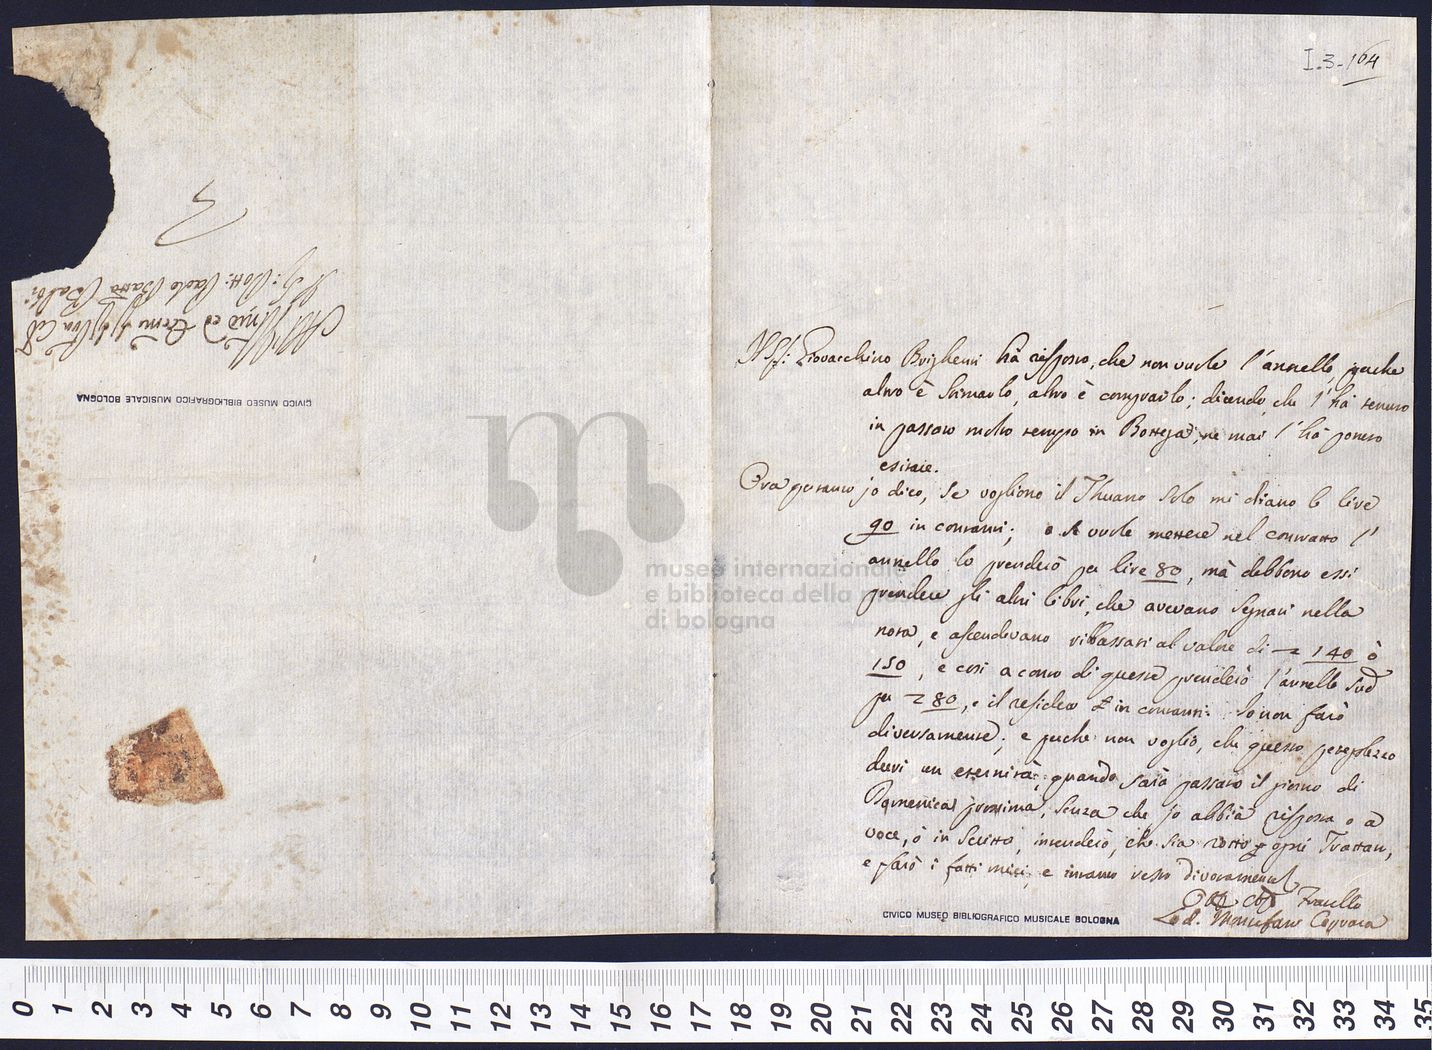 I.3-164
Il Sig: Giovacchino Brighenti hà risposto, che non vuole l'annello, perche
altro è stimarlo, altro è comprarlo; dicendo, che l'hà tenuto
in passato molto tempo in Bottega, ne mai l'hà potuto
esitare.
Ora pertanto jo dico, se vogliono il Thuano solo mi diano le lire
90 in contanti; o se vuole mettere nel contratto l'
annello lo prenderò per lire 80, mà debbono essi
prendere gli altri libri, che avevano segnati nella
nota, e ascendevano ribassati al valore di 140 ò
150, e così a conto di queste prenderò l'annello sud.
per 80, e il residuo in contanti. Io non farò
diversamente; e perche non voglio, che questo
duri un eternità, quando sarà passato il giorno di
Domenica prossima, senza che jo abbia risposta o a
voce, ò in scritto, intenderò, che sia rotto ogni Trattato,
e farò i fatti miei, e intanto resto divotamente
Fratello
Lod. Montefani Caprara
Sig: Dott. Paolo Batta Balbi
CIVICO MUSEO BIBLIOGRAFICO MUSICALE BOLOGNA
CIVICO MUSEO BIBLIOGRAFICO MUSICALE BOLOGNA
museo internazionale
e biblioteca della
di bologna
0 1 2 3 4 5 6 7 8 9 10 11 12 13 14 15 16 17 18 19 20 21 22 23 24 25 26 27 28 29 30 31 32 33 34 35